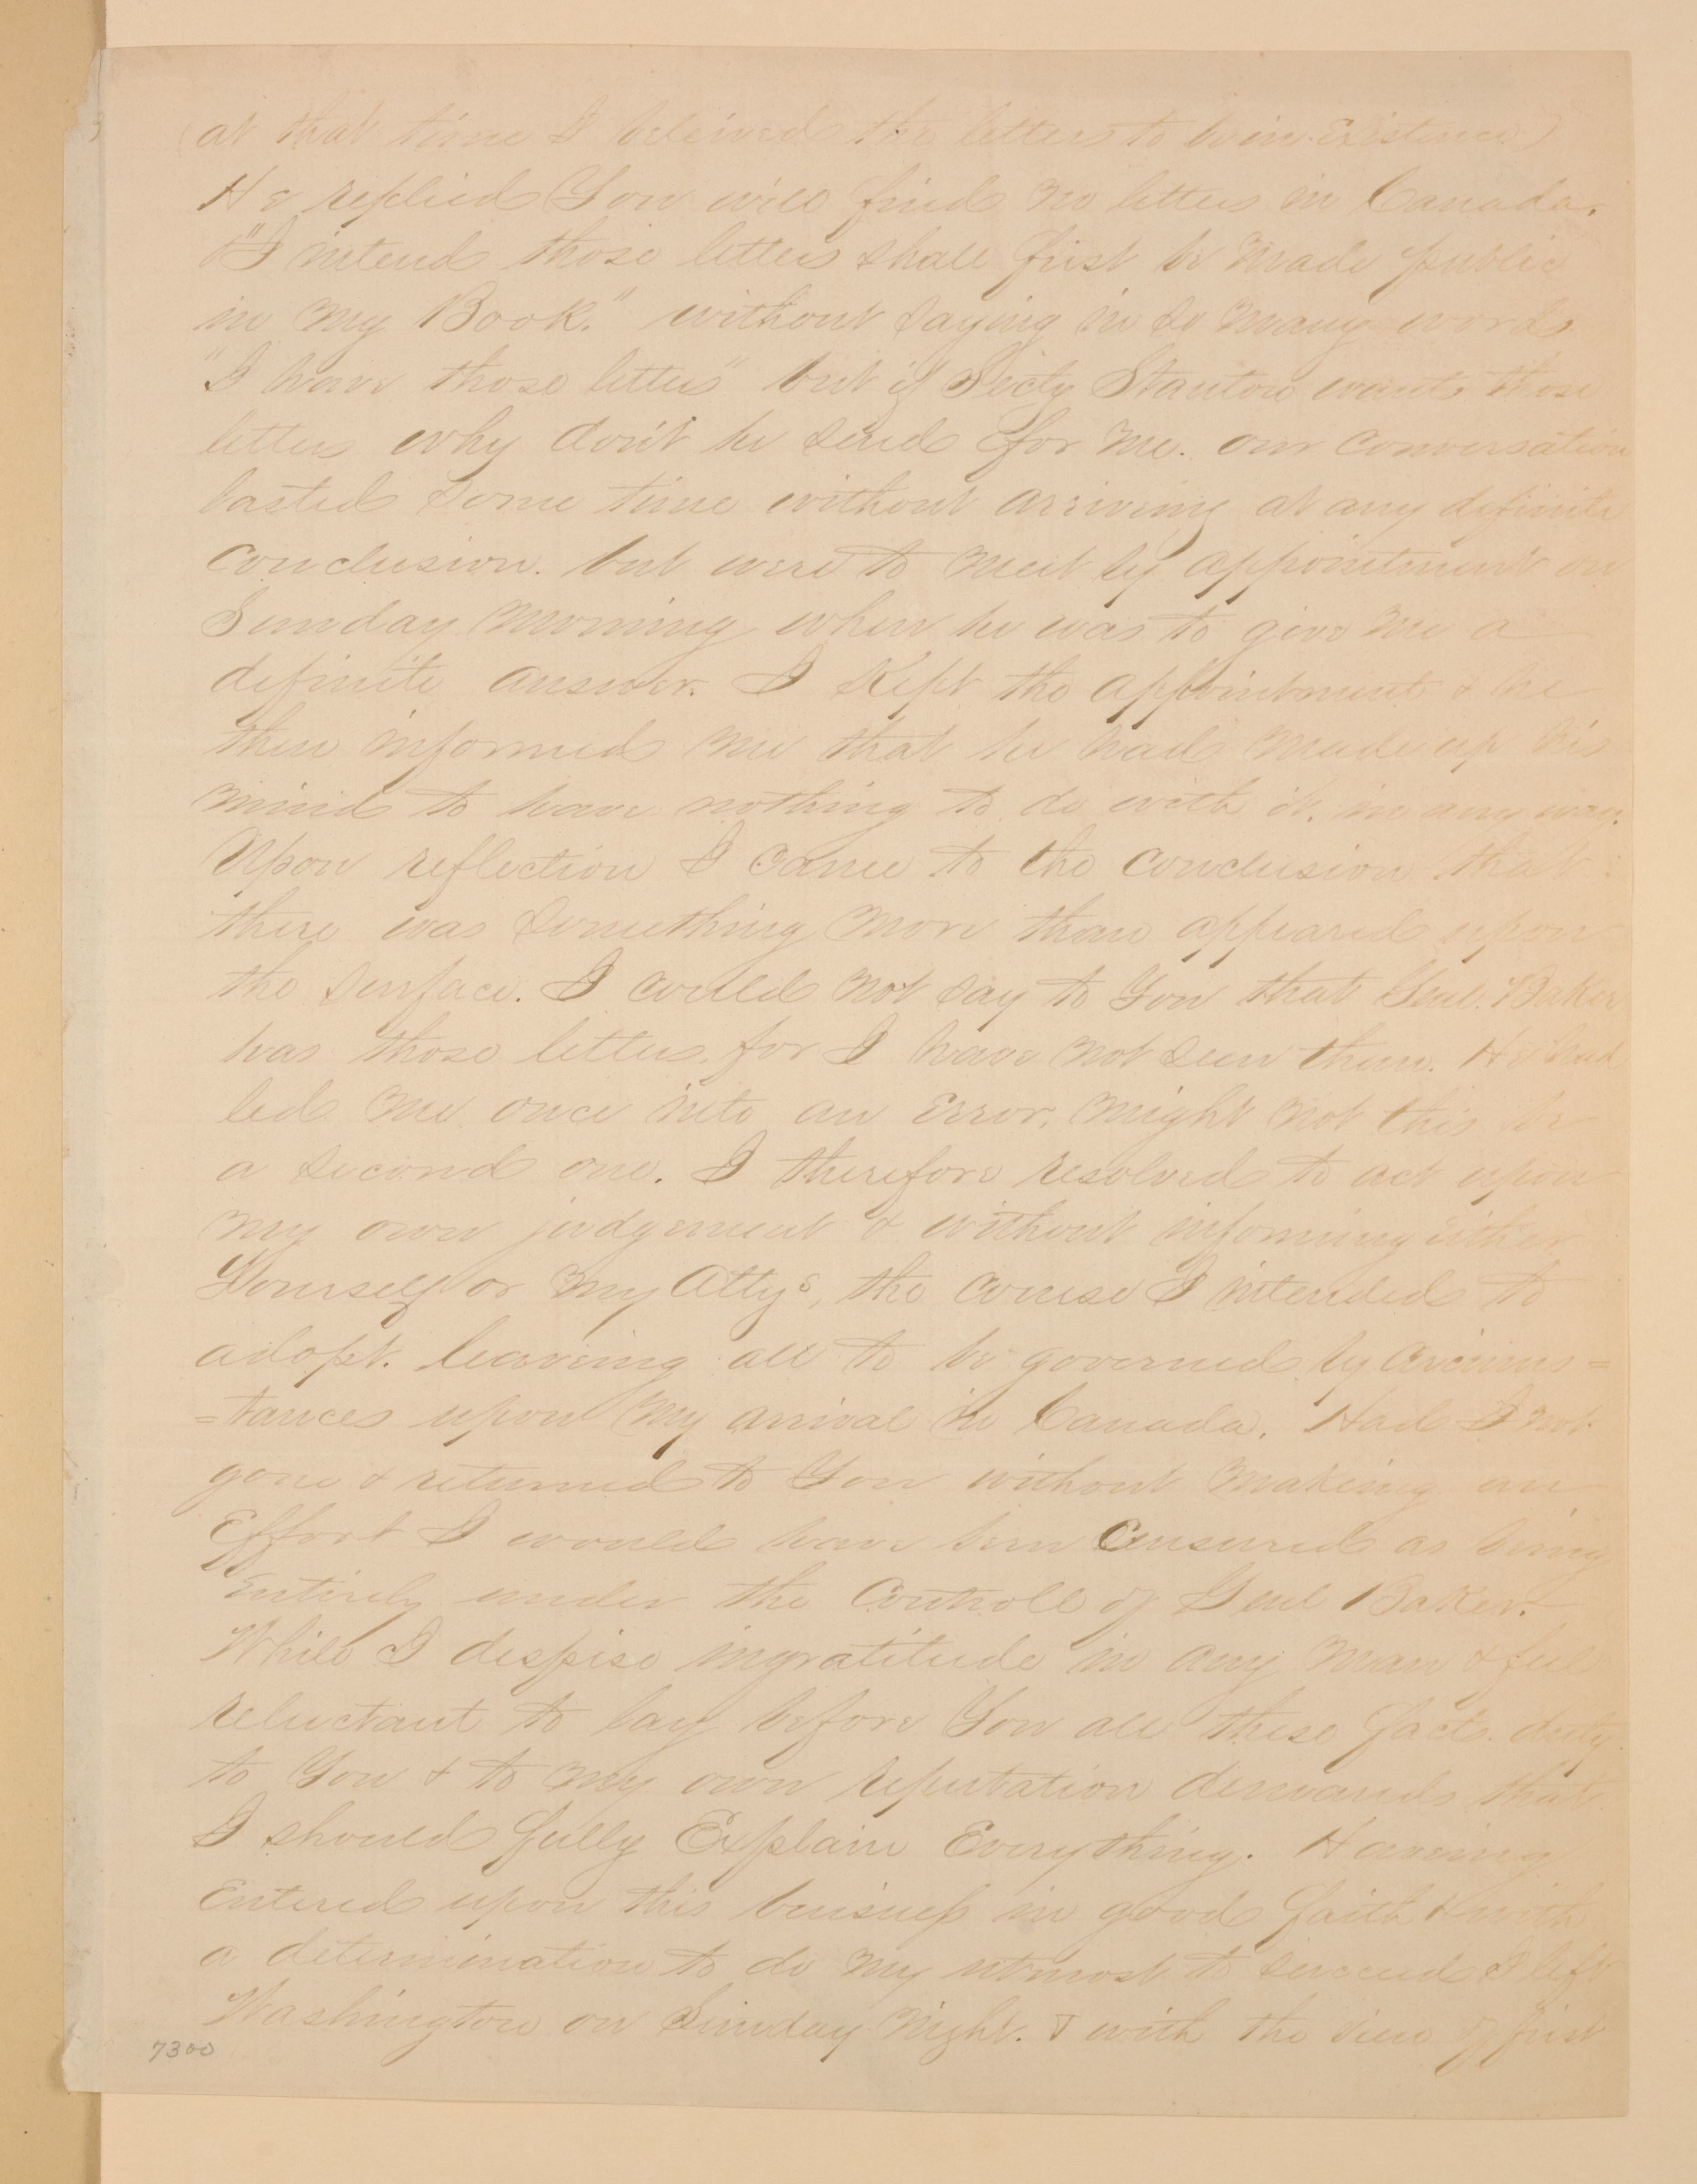 (at that time I beleived the letters to be in Existence)
He replied You will find no letters in Canada.
"I intend those letters shall first be made public
in my Book." without saying in so many words
"I have those letters" but if Secty Stanton wants those
letters why don't he send for me. our conversation
lasted some time without arriving at any definite
conclusion. but were to meet by appointment on
Sunday morning when he was to give me a
definite answer. I kept the appointment & he
then informed me that he had made up his
mind to have nothing to do with it, in any way.
Upon reflection I came to the conclusion that
there was something more than appeared upon
the surface. I could not say to You that Genl. Baker
has those letters, for I have not seen them. He had
led me once into an Error, might not this be
a second one. I therefore resolved to act upon
my own judgement & without informing either
Yourself or my Attys, the course I intended to
adopt. leaving all to be governed by circums=
=tances upon my arrival in Canada. Had I not
gone & returned to You without making an
Effort I would have been Censured as being
Entirely under the Controll of Genl Baker.
While I despise ingratitude in any man & feel
reluctant to lay before You all these facts. duty
to You & to my own reputation demands that
I should fully Explain Everything. Having
Entered upon this buisness in good faith & with
a determination to do my utmost to succeed I left
Washington on Sunday night. & with the view of first
7300